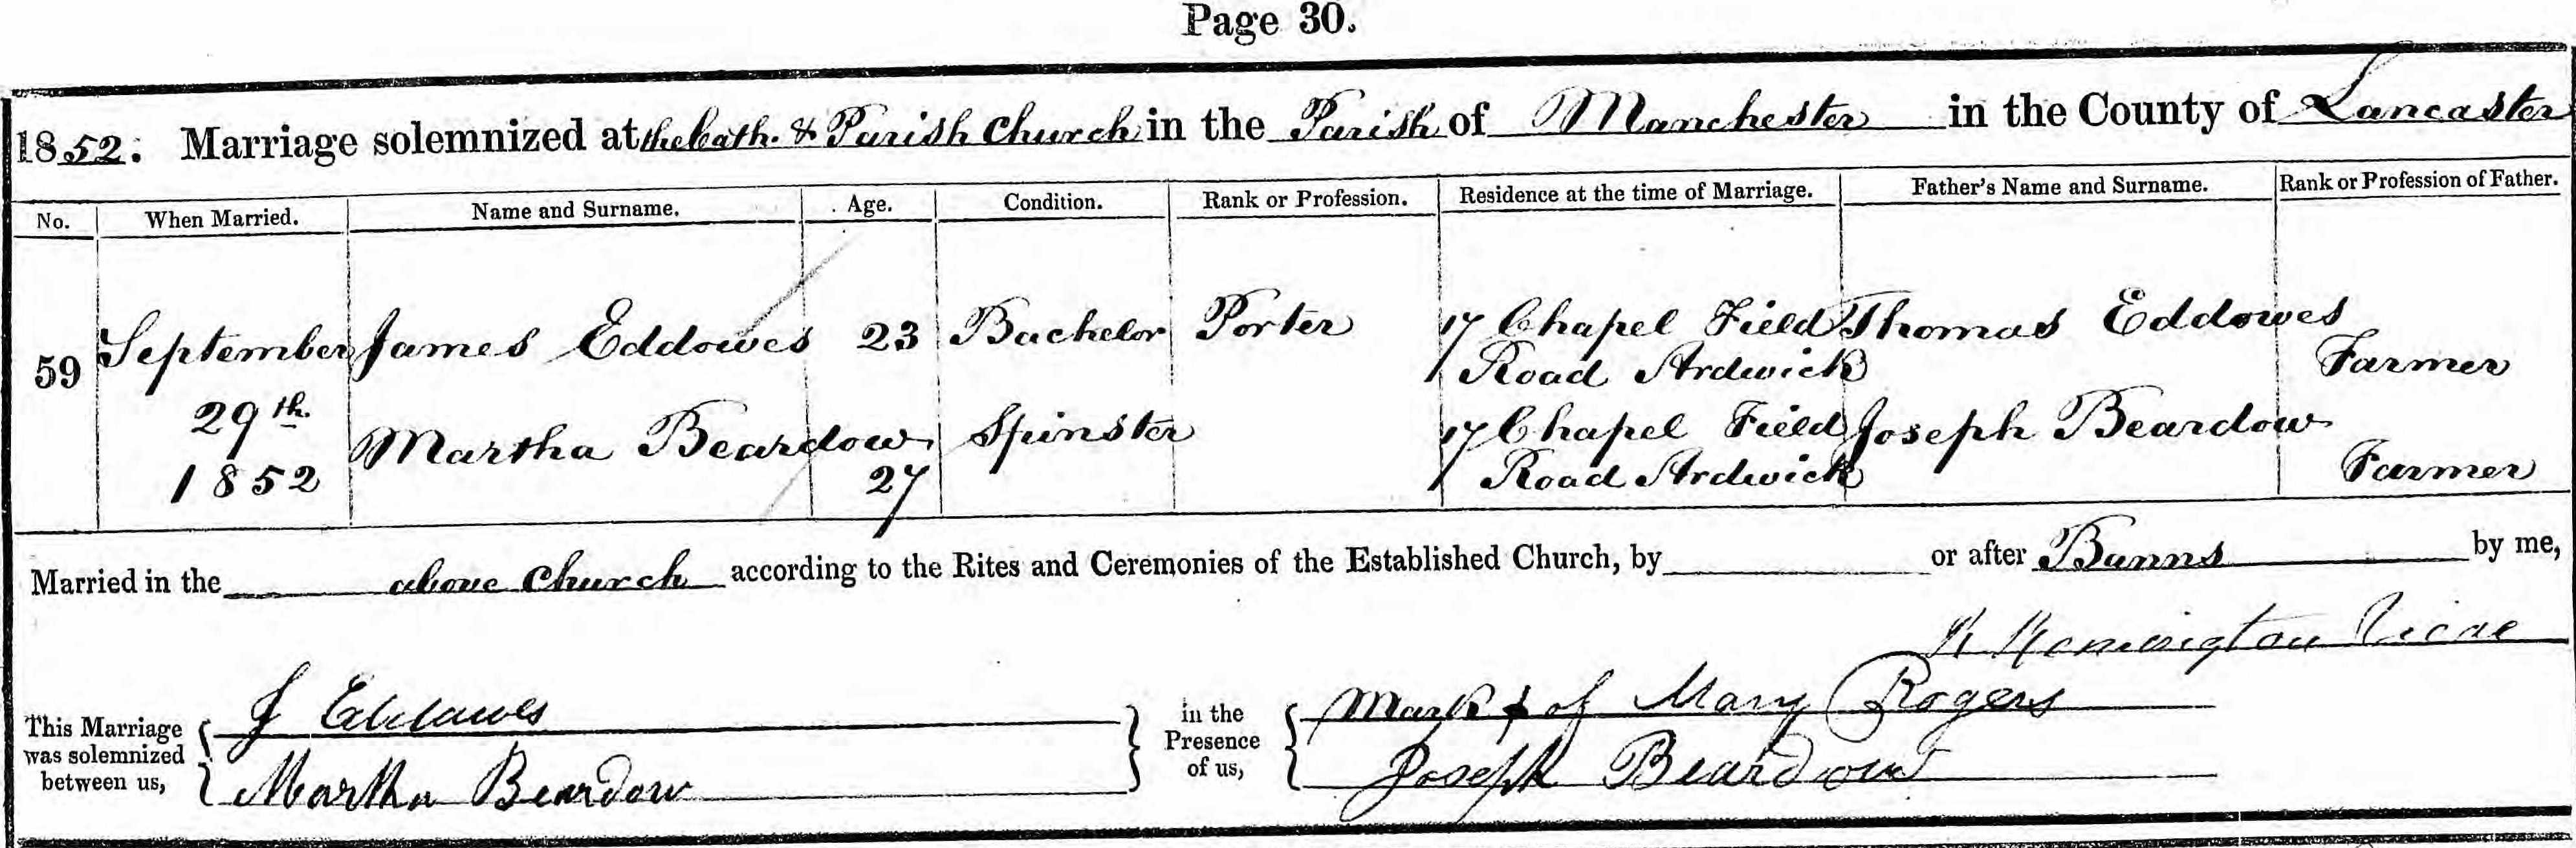 Page 30.
1852. Marriage solemnized at the Cath. & Parish Church in the Parish of Manchester in the County of Lancaster
No. When Married. Name and Surname. Age. Condition. Rank or Profession. Residence at the time of Marriage. Father's Name and Surname. Rank or Profession of Father.
59 September James Eddowes 23 Bachelor Porter 17 Chapel Field Thomas Eddowes
Road Ardwick Farmer
29th. Martha Beardow Spinster 17 Chapel Field Joseph Beardow
1852 27 Road Ardwick Farmer
Married in the above Church according to the Rites and Ceremonies of the Established Church, by or after Banns by me,
R Remington Vicar
This Marriage was solemnized between us,
J Eddowes
Martha Beardow
in the Presence of us,
Mark + of Mary Rogers
Joseph Beardow